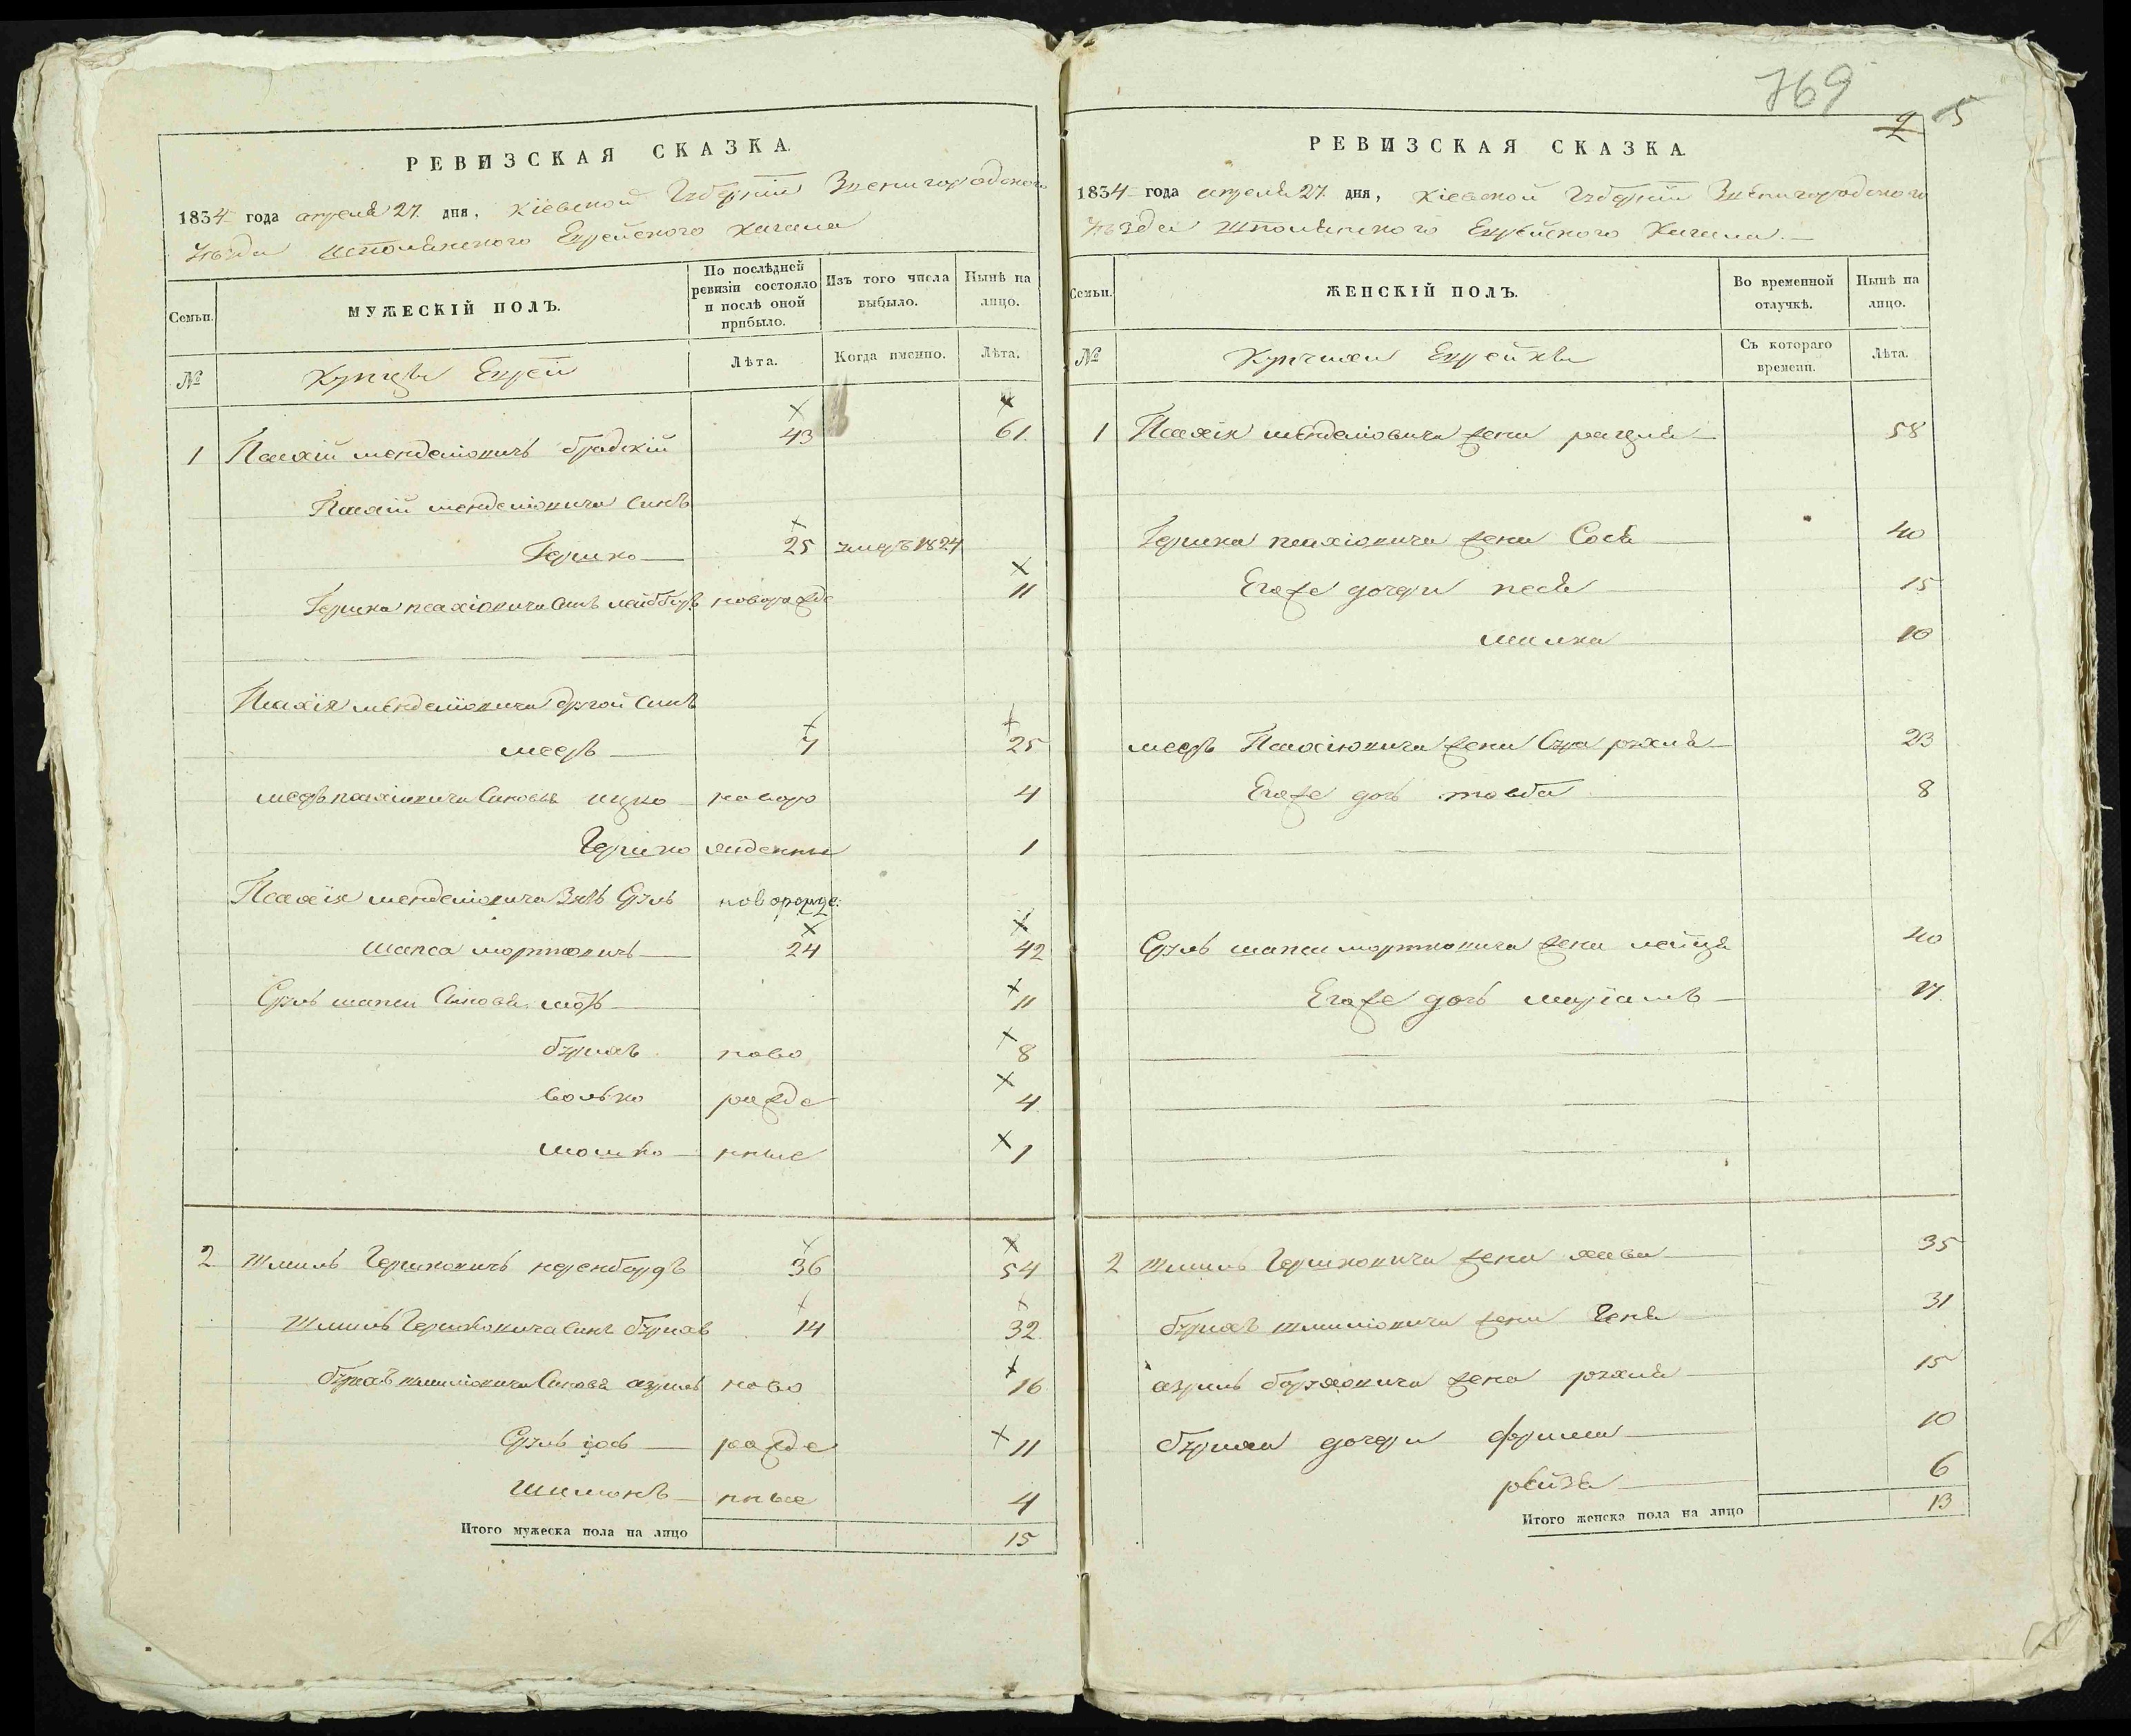 769
2 5
РЕВИЗСКАЯ СКАЗКА.
1834 года апреля 27. дня, Кіевской Губерніи Звенигородского
уѣзда Шполянского Еврейского Кагала
Семьи.
МУЖЕСКІЙ ПОЛЪ.
По послѣдней ревизіи состояло и послѣ оной прибыло.
Изъ того числа выбыло.
Нынѣ на лицо.
№
Купцы Евреи
Лѣта.
Когда именно.
Лѣта.
1 Псахій менделіовичъ бродскій 43 61
Псахій менделіовича Синъ
Гершко 25 умеръ 1824
Гершка псахіовича Синъ лейбберъ новорожде 11
Псахія менделіовича другой Синъ
мееръ 7 25
мееръ псахіовича Синовья ицко новоро 4
Гершко жденные 1
Псахія менделіовича Зять Сруль новорожде:
шапса мортковичъ 24 42
Сруль шапси Синовя 11
бурихъ ново 8
волько рожде 4
мошко нные 1
2 шмиль Гершковичъ 36 54
шмиль Гершковича Синъ бурихъ 14 32
бурихъ шмиліовича Синовя азриль ново 16
Сруль іосъ рожде 11
шимонъ нные 4
Итого мужеска пола на лицо 15
РЕВИЗСКАЯ СКАЗКА.
1834 года апреля 27. дня, Кіевской Губерніи Звенигородского
уѣзда Шполянского Еврейского Кагала.
Семьи.
ЖЕНСКІЙ ПОЛЪ.
Во временной отлучкѣ.
Нынѣ на лицо.
№
Купчихи Еврейки
Съ котораго времени.
Лѣта.
1 Псахія менделіовича жена рахля 58
Гершка псахіовича жена Сося 40
Егоже дочери песя 15
милка 10
мееръ Псахіовича жена Сура рухля 23
Егоже дочь товба 8
Сруль шапси мортковича жена лейця 40
Егоже дочь миріамъ 17
2 шмиль Гершковича жена хава 35
бурихъ шмиліовича жена Геня 31
азриль борухіовича жена рухля 15
буриха дочери фрима 10
рейзя 6
Итого женска пола на лицо 13